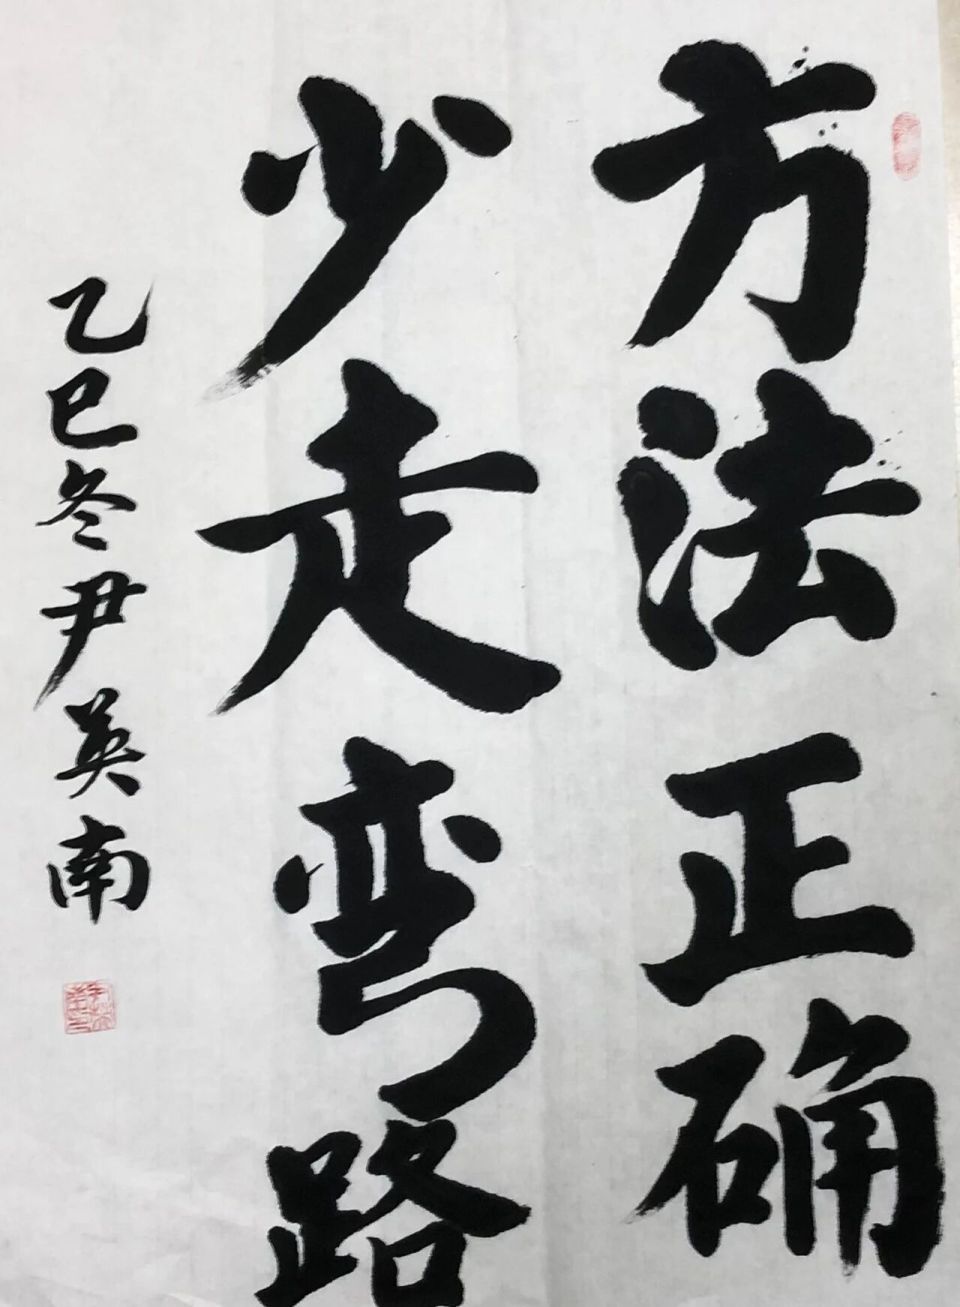 方法正确
少走弯路
乙巳冬尹英南